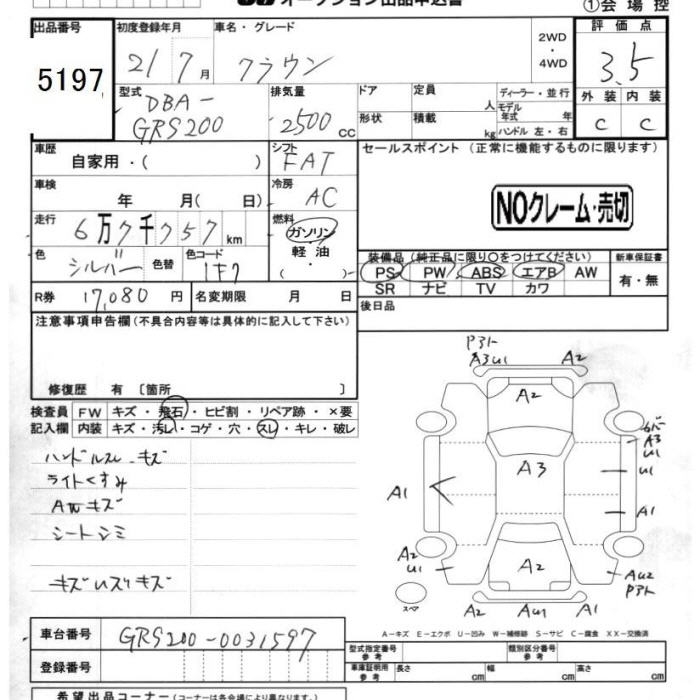 オークション出品申込書
①会場控
出品番号 5197
初度登録年月 21 7月
車名・グレード クラウン
2WD・4WD
評価点 3.5
外装 C 内装 C
型式 DBA-GRS200
排気量 2500 cc
ドア 形状
定員 人 積載 kg
ディーラー・並行
モデル年式 年
ハンドル 左・右
車歴 自家用・( )
シフト FAT
車検 年 月( 日)
冷房 AC
走行 6万7千757km
燃料 ガソリン・軽油・( )
色 シルバー 色替
色コード 1F7
R券 17,080 円
名変期限 月 日
セールスポイント (正常に機能するものに限ります)
NOクレーム・売切
装備品(純正品に限り○をつけてください)
PS PW ABS エアB AW
SR ナビ TV カワ
新車保証書 有・無
後日品
注意事項申告欄(不具合内容等は具体的に記入して下さい)
修復歴 有〔箇所 〕
検査員記入欄
FW キズ・飛石・ヒビ割・リペア跡・×要
内装 キズ・汚レ・コゲ・穴・スレ・キレ・破レ
ハンドルスレ キズ
ライトくすみ
AWキズ
シートシミ
キズ
キズ
Pアト
A3U1 A2
A2
A3
A3
U1
U1
A1
A1
A2
U1
A2
AU2
Pアト
A2 AU1 A1
スペア
A-キズ E-エクボ U-凹み W-補修跡 S-サビ C-腐食 XX-交換済
車台番号 GRS200-0031597
登録番号
型式指定番号 参考
類別区分番号 参考
車庫証明用 参考
長さ cm 幅 cm 高さ cm
希望出品コーナー(コーナーは各会場により異なります。)